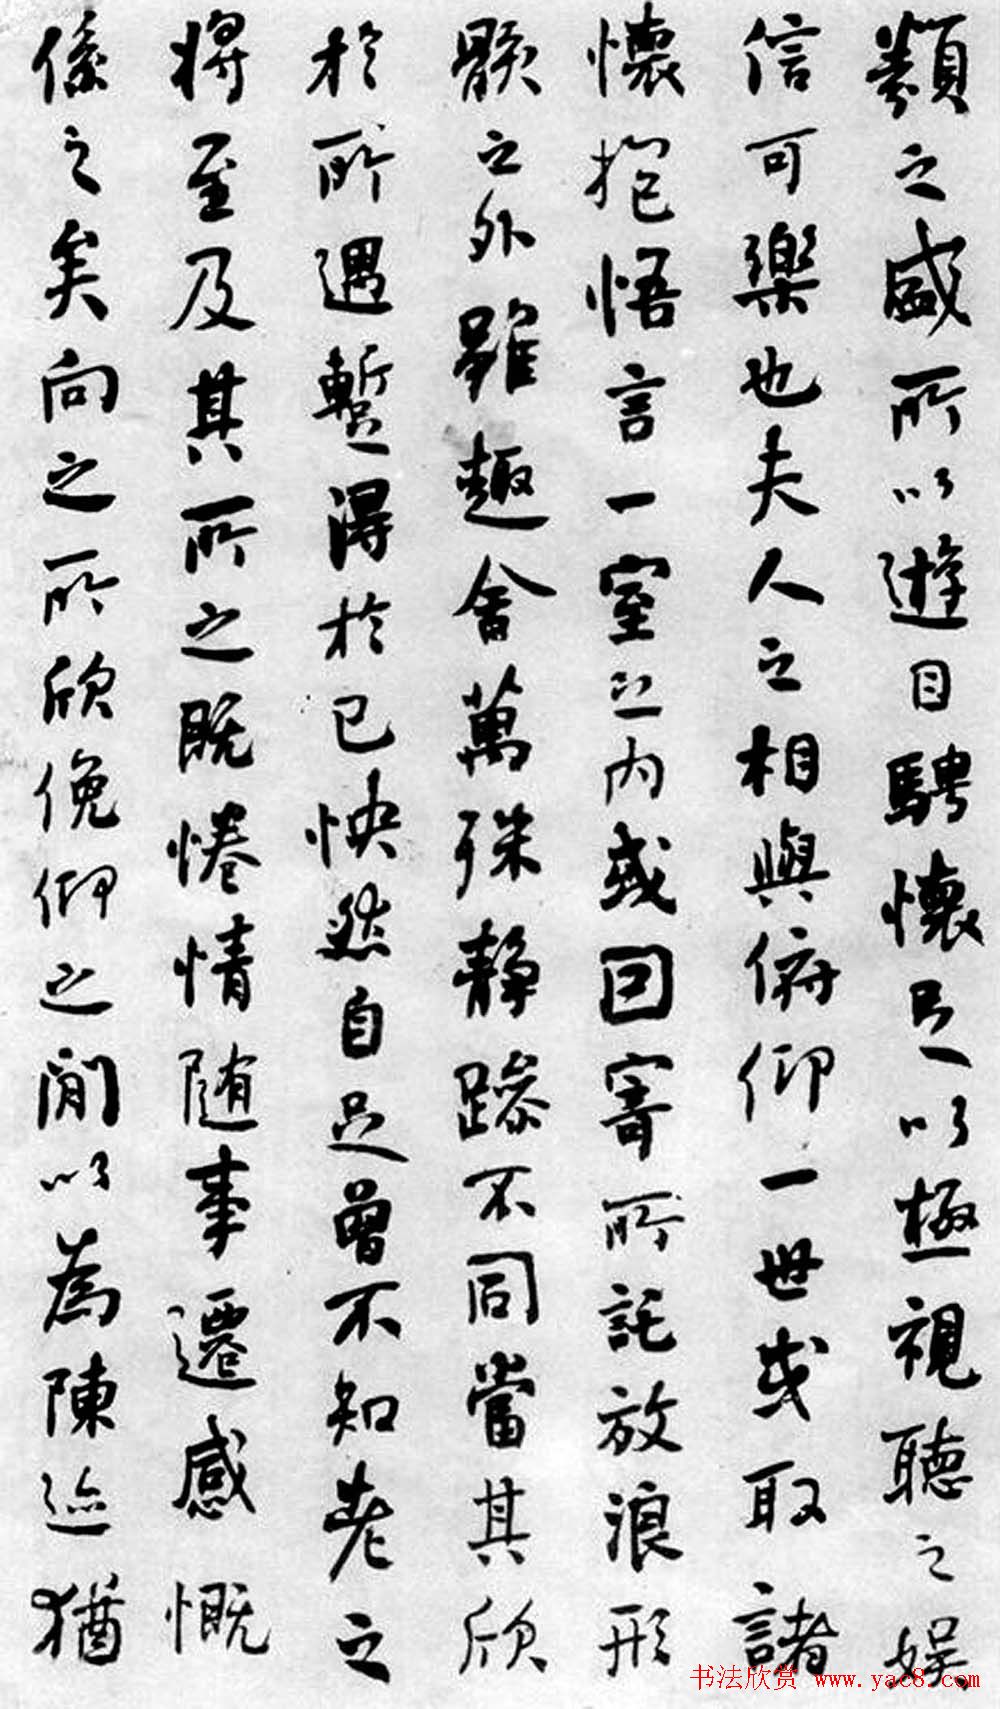 類之盛所以遊目騁懷足以極視聽之娛
信可樂也夫人之相與俯仰一世或取諸
懷抱悟言一室之內或回寄所託放浪形
骸之外雖趣舍萬殊靜躁不同當其欣
於所遇暫得於己怏然自足曾不知老之
將至及其所之既惓情隨事遷感慨
係之矣向之所欣俛仰之閒以為陳迹猶
书法欣赏 www.yac8.com